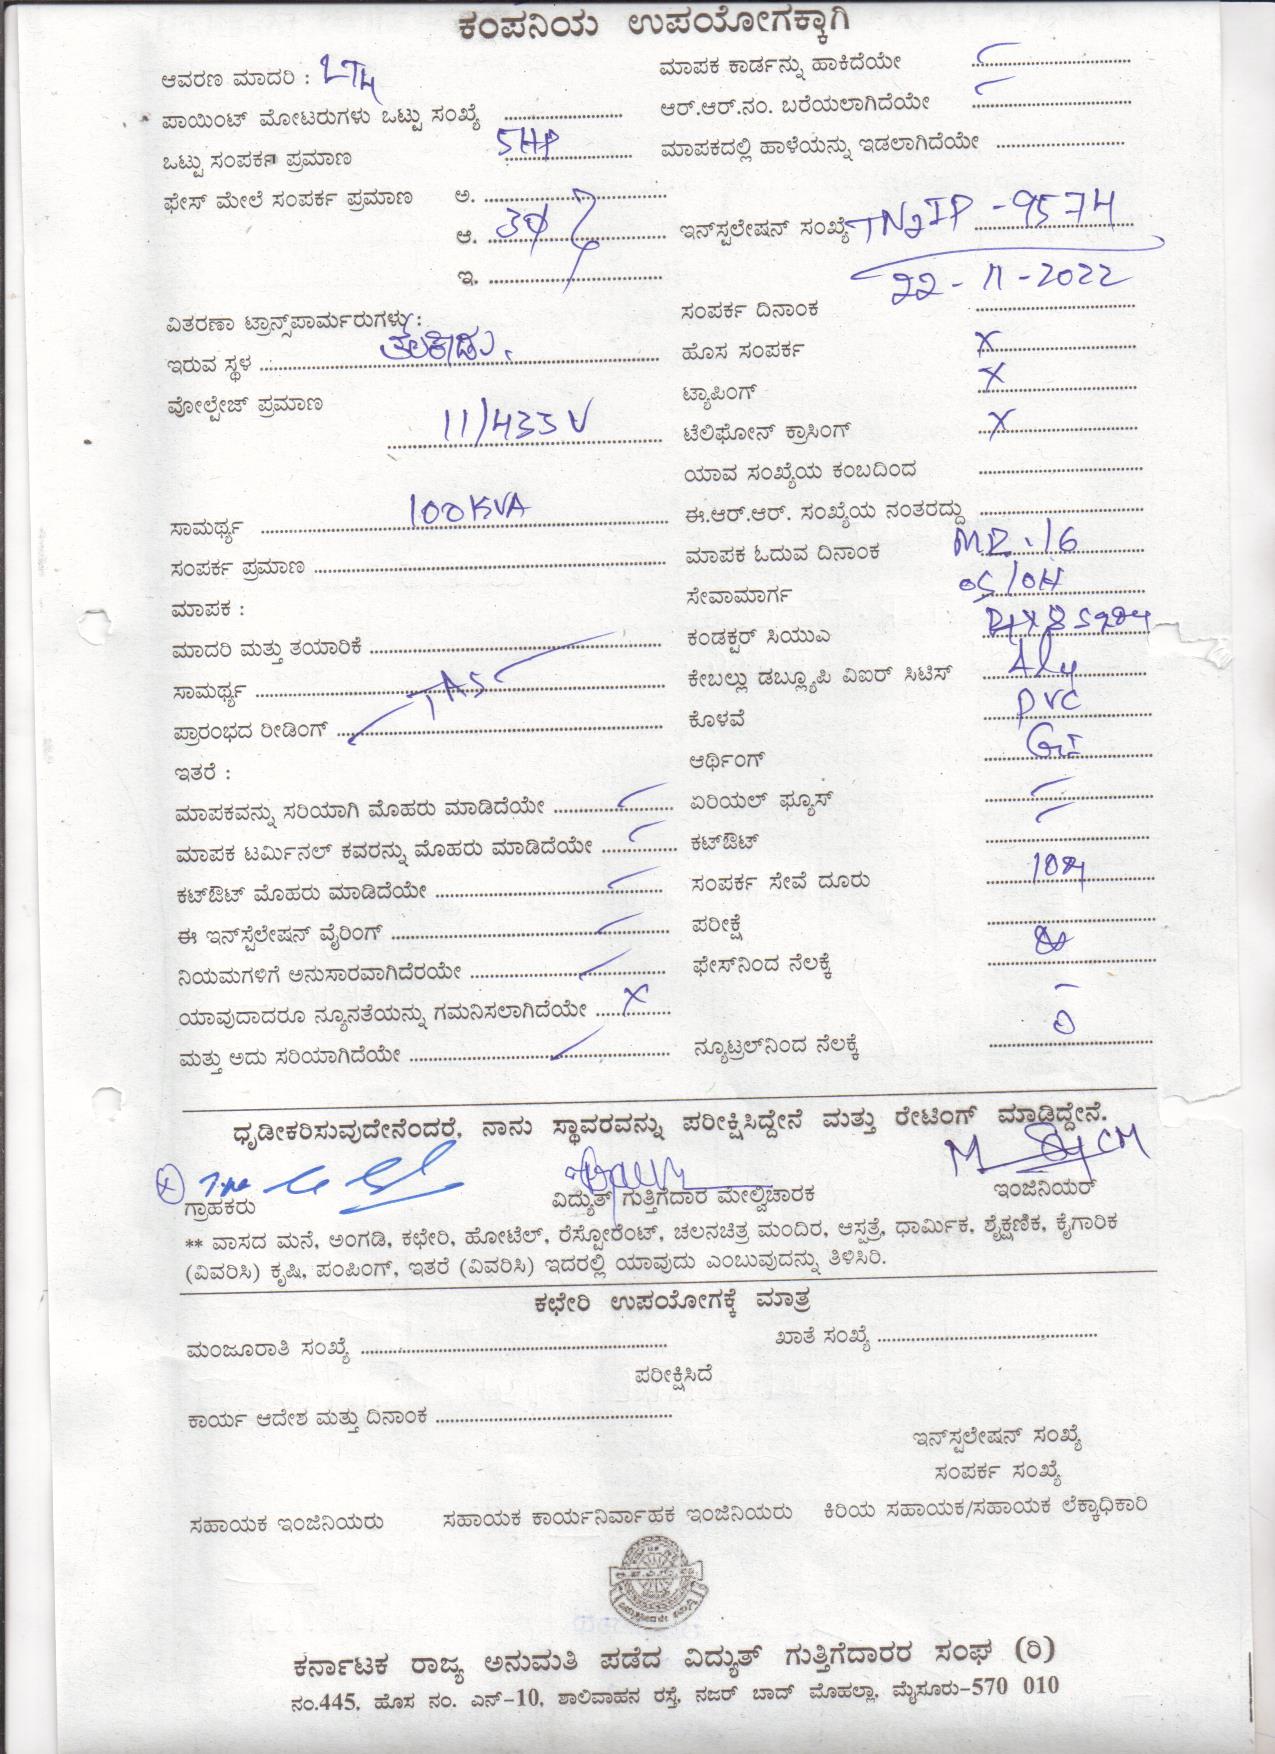 ಕಂಪನಿಯ ಉಪಯೋಗಕ್ಕಾಗಿ
ಆವರಣ ಮಾದರಿ : LT4
ಮಾಪಕ ಕಾರ್ಡನ್ನು ಹಾಕಿದೆಯೇ
ಪಾಯಿಂಟ್ ಮೋಟರುಗಳು ಒಟ್ಟು ಸಂಖ್ಯೆ
ಆರ್.ಆರ್.ನಂ. ಬರೆಯಲಾಗಿದೆಯೇ
ಒಟ್ಟು ಸಂಪರ್ಕ ಪ್ರಮಾಣ 5HP
ಮಾಪಕದಲ್ಲಿ ಹಾಳೆಯನ್ನು ಇಡಲಾಗಿದೆಯೇ
ಫೇಸ್ ಮೇಲೆ ಸಂಪರ್ಕ ಪ್ರಮಾಣ ಅ.
ಆ. 3Ø
ಇನ್‌ಸ್ಪಲೇಷನ್ ಸಂಖ್ಯೆ TN2IP-9574
ಇ.
22-11-2022
ಸಂಪರ್ಕ ದಿನಾಂಕ
ವಿತರಣಾ ಟ್ರಾನ್ಸ್‌ಪಾರ್ಮರುಗಳು :
ಇರುವ ಸ್ಥಳ ತಲಕಾಡು.
ಹೊಸ ಸಂಪರ್ಕ x
ಟ್ಯಾಪಿಂಗ್ x
ವೋಲ್ಟೇಜ್ ಪ್ರಮಾಣ 11/433V
ಟೆಲಿಫೋನ್ ಕ್ರಾಸಿಂಗ್ x
ಯಾವ ಸಂಖ್ಯೆಯ ಕಂಬದಿಂದ
ಸಾಮರ್ಥ್ಯ 100KVA
ಈ.ಆರ್.ಆರ್. ಸಂಖ್ಯೆಯ ನಂತರದ್ದು
ಸಂಪರ್ಕ ಪ್ರಮಾಣ
ಮಾಪಕ ಓದುವ ದಿನಾಂಕ MR.16
ಮಾಪಕ :
ಸೇವಾಮಾರ್ಗ OS/OH
ಮಾದರಿ ಮತ್ತು ತಯಾರಿಕೆ
ಕಂಡಕ್ಟರ್ ಸಿಯುಎ
ಸಾಮರ್ಥ್ಯ
ಕೇಬಲ್ಲು ಡಬ್ಲ್ಯೂಪಿ ವಿಐರ್ ಸಿಟಿಸ್
ಪ್ರಾರಂಭದ ರೀಡಿಂಗ್
ಕೊಳವೆ PVC
ಇತರೆ :
ಆರ್ಥಿಂಗ್ GI
ಮಾಪಕವನ್ನು ಸರಿಯಾಗಿ ಮೊಹರು ಮಾಡಿದೆಯೇ
ಏರಿಯಲ್ ಫ್ಯೂಸ್
ಮಾಪಕ ಟರ್ಮಿನಲ್ ಕವರನ್ನು ಮೊಹರು ಮಾಡಿದೆಯೇ
ಕಟ್‌ಔಟ್
ಕಟ್‌ಔಟ್ ಮೊಹರು ಮಾಡಿದೆಯೇ
ಸಂಪರ್ಕ ಸೇವೆ ದೂರು
ಈ ಇನ್‌ಸ್ಟೆಲೇಷನ್ ವೈರಿಂಗ್
ಪರೀಕ್ಷೆ
ನಿಯಮಗಳಿಗೆ ಅನುಸಾರವಾಗಿದೆರಯೇ
ಫೇಸ್‌ನಿಂದ ನೆಲಕ್ಕೆ
ಯಾವುದಾದರೂ ನ್ಯೂನತೆಯನ್ನು ಗಮನಿಸಲಾಗಿದೆಯೇ x
ಮತ್ತು ಅದು ಸರಿಯಾಗಿದೆಯೇ
ನ್ಯೂಟ್ರಲ್‌ನಿಂದ ನೆಲಕ್ಕೆ 0
ಧೃಡೀಕರಿಸುವುದೇನೆಂದರೆ, ನಾನು ಸ್ಥಾವರವನ್ನು ಪರೀಕ್ಷಿಸಿದ್ದೇನೆ ಮತ್ತು ರೇಟಿಂಗ್ ಮಾಡಿದ್ದೇನೆ.
ಗ್ರಾಹಕರು
ವಿದ್ಯುತ್ ಗುತ್ತಿಗೆದಾರ ಮೇಲ್ವಿಚಾರಕ
ಇಂಜಿನಿಯರ್
** ವಾಸದ ಮನೆ, ಅಂಗಡಿ, ಕಛೇರಿ, ಹೋಟೆಲ್, ರೆಸ್ಟೋರೆಂಟ್, ಚಲನಚಿತ್ರ ಮಂದಿರ, ಆಸ್ಪತ್ರೆ, ಧಾರ್ಮಿಕ, ಶೈಕ್ಷಣಿಕ, ಕೈಗಾರಿಕ
(ವಿವರಿಸಿ) ಕೃಷಿ, ಪಂಪಿಂಗ್, ಇತರೆ (ವಿವರಿಸಿ) ಇದರಲ್ಲಿ ಯಾವುದು ಎಂಬುವುದನ್ನು ತಿಳಿಸಿರಿ.
ಕಛೇರಿ ಉಪಯೋಗಕ್ಕೆ ಮಾತ್ರ
ಮಂಜೂರಾತಿ ಸಂಖ್ಯೆ
ಖಾತೆ ಸಂಖ್ಯೆ
ಪರೀಕ್ಷಿಸಿದೆ
ಕಾರ್ಯ ಆದೇಶ ಮತ್ತು ದಿನಾಂಕ
ಇನ್‌ಸ್ಪಲೇಷನ್ ಸಂಖ್ಯೆ
ಸಂಪರ್ಕ ಸಂಖ್ಯೆ
ಸಹಾಯಕ ಇಂಜಿನಿಯರು
ಸಹಾಯಕ ಕಾರ್ಯನಿರ್ವಾಹಕ ಇಂಜಿನಿಯರು
ಕಿರಿಯ ಸಹಾಯಕ/ಸಹಾಯಕ ಲೆಕ್ಕಾಧಿಕಾರಿ
ಕರ್ನಾಟಕ ರಾಜ್ಯ ಅನುಮತಿ ಪಡೆದ ವಿದ್ಯುತ್ ಗುತ್ತಿಗೆದಾರರ ಸಂಘ (ರಿ)
ನಂ.445, ಹೊಸ ನಂ. ಎನ್-10, ಶಾಲಿವಾಹನ ರಸ್ತೆ, ನಜರ್ ಬಾದ್ ಮೊಹಲ್ಲಾ, ಮೈಸೂರು-570 010